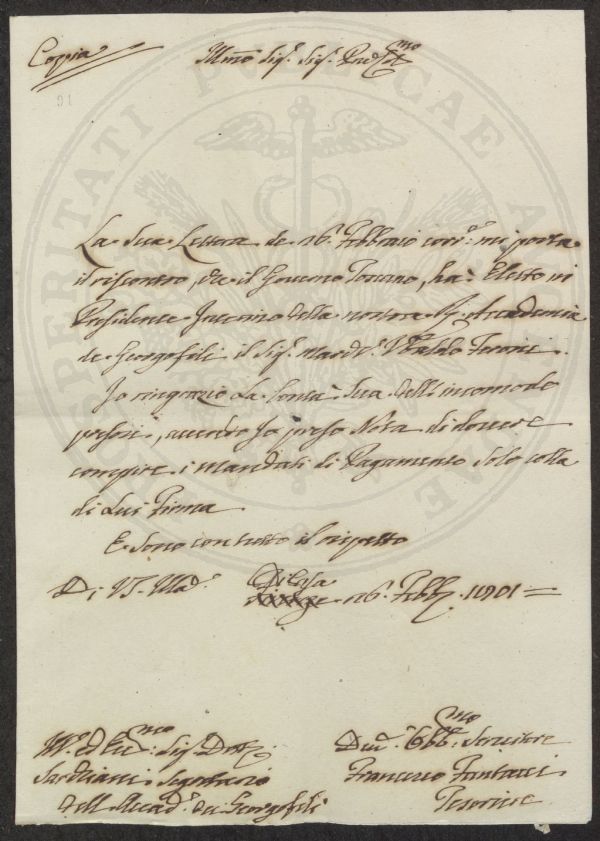 Copia
Illmo Sig.r Sig.r
91
La Sua Lettera de 16. Febbraio corr.e mi porta
il riscontro, che il Governo Toscano, ha Eletto in
Presidente Interino della nostra R. Accademia
de Georgofili il Sig.r March.e Ubaldo Feroni.
Io ringrazio La bontà Sua dell'incomodo
presosi, avendo Io preso Nota di dovere
i mandati di Pagamento solo colla
di Lui Firma
E sono con tutto il rispetto
Di VS. Ill.a
Di Casa
16. Febb.
Sig.r Dott.
Segretario
Dell'Accad.a dei Georgofili
Dev.mo Obb.mo Servitore
Francesco Fantacci
Tesoriere
PROSPERITATI PUBLICAE AUGENDAE